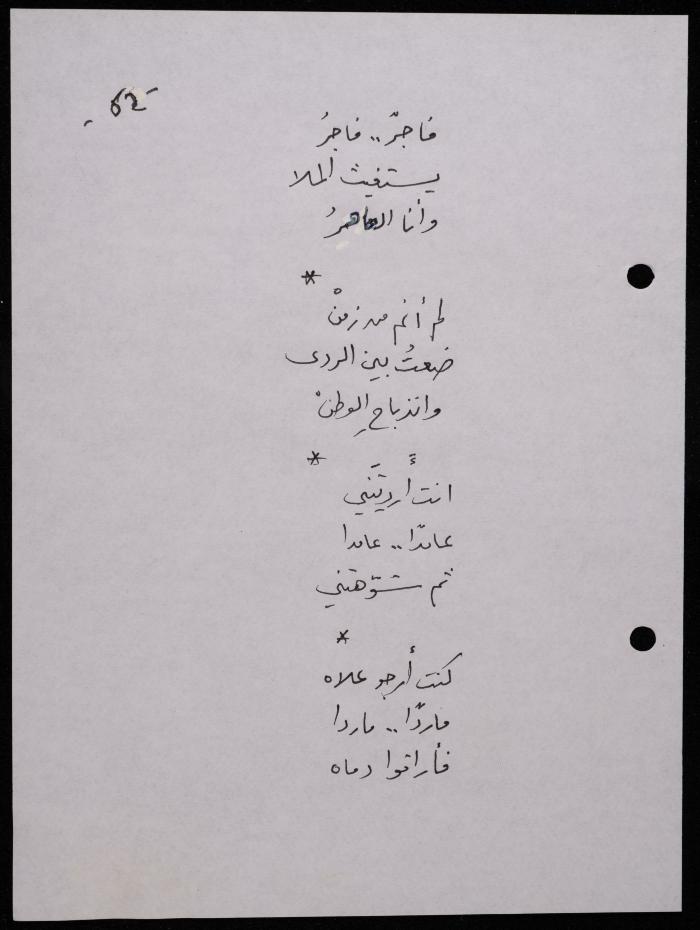 -62-
فاجرٌ.. فاجرُ
يستغيث الملا
وأنا العاهرُ
*
لم أنم من زمنْ
ضعتُ بين الردى
وانذباحِ الوطنْ
*
انت أَرديتَني
عامدًا.. عامدا
ثم شوّهتني
*
كنت أرجو علاه
ماردًا.. ماردا
فأراقوا دماه